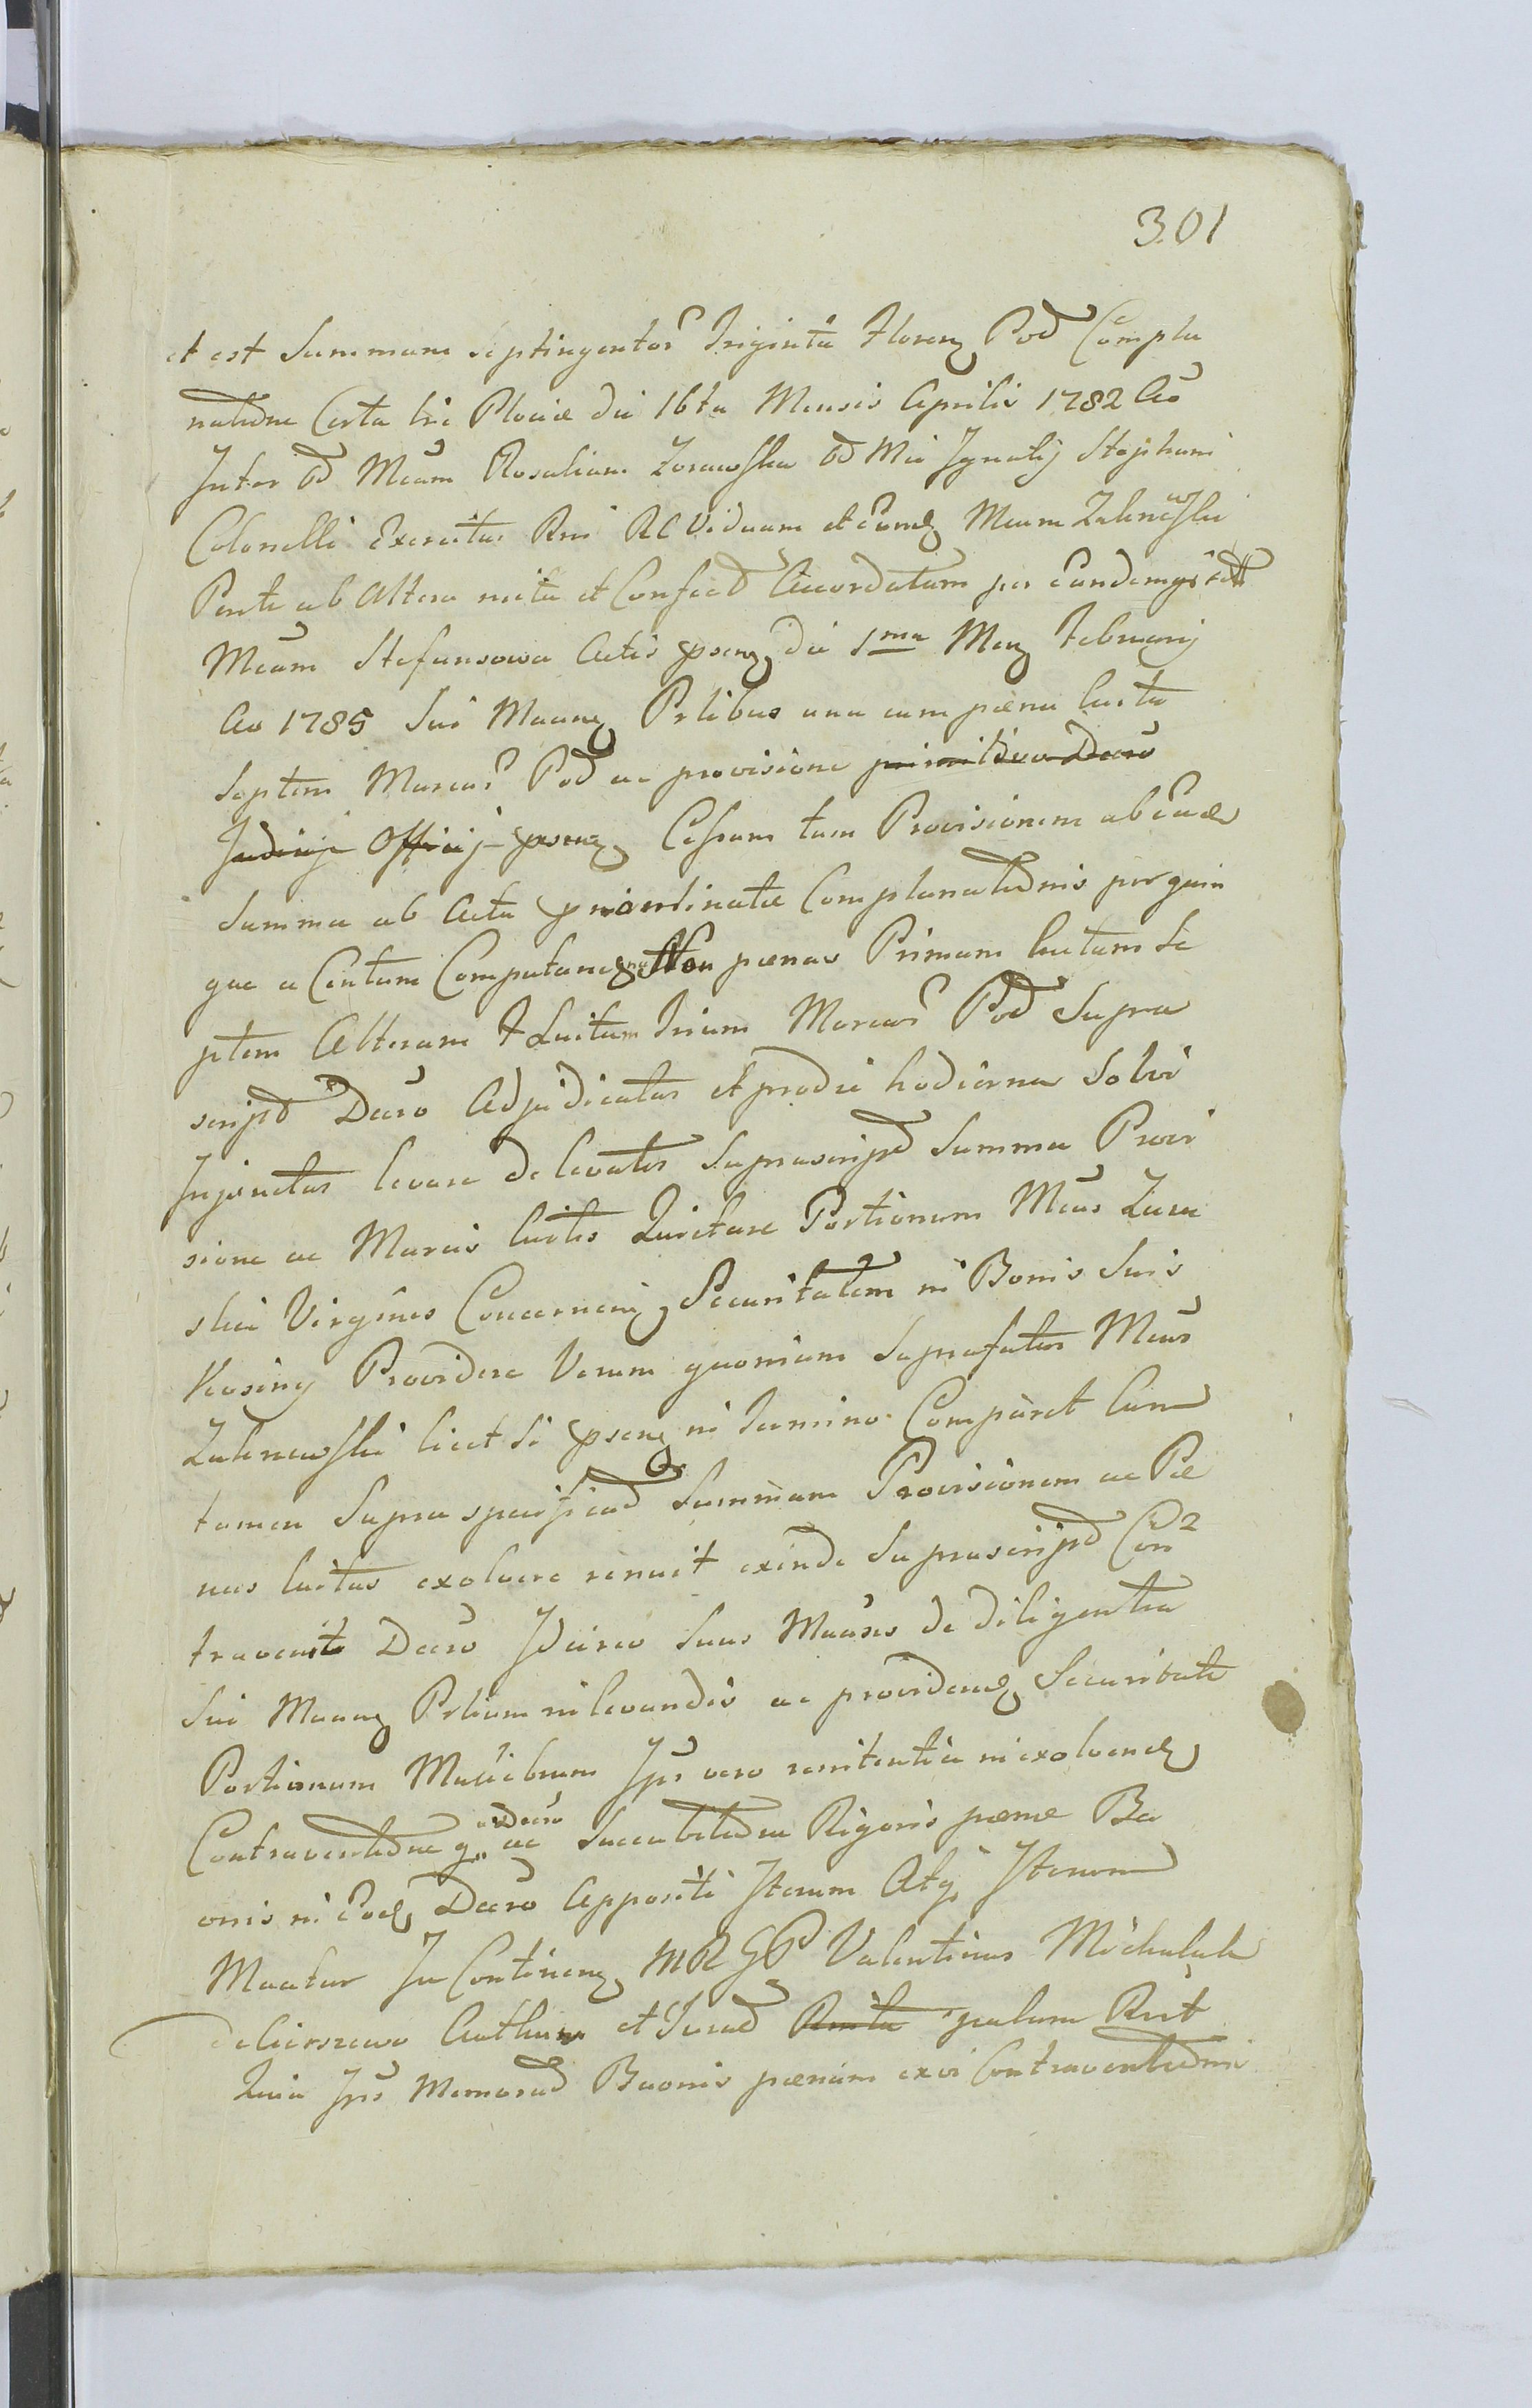 301
et est Summam septingentor Triginta Floren Pod Compla
natedne Certa hic Plociæ die 16ta Mensis Aprilis 1782 Ao
Inter Gd Mcam Rosaliam Zorawska Gd Mci Ignatij Stephani
Colonelli Exercitus Rni RC Viduam et Eund Mcum Zalewski
Parte ab Altera inita et Confect Accordatum per Eandem
Mcam Stefansowa Actis prsen die 1ma Men Februarij
Ao 1785 Sui Maanz Prtibus una cum pæna luita
Septem Marcar Pod ac provisione primitivo Decro
Judicij Officij prsenz Cessam tum Provisionem ab Eade
Summa ab Acta præordinatæ Complanatednis per quin
que a Centum Computanz pænas Primam luitam Se
ptem Alteram Luitam Trium Marcar Pod Supra
script Decro Adjudicatas et pro die hodierna Solvi
Injunctas levare de levatis Suprascript Summa Provi
sione ac Marcis luitis Quietare Portionum Mcas Zura
skie Virgines Concernenz Securitatem in Bonis Suis
Kosiny Providere Verum quoniam Suprafatus Mcus
Zalewski licet Se prsenz in Termino Comparet Cum
tamen Supra specificat Summam Provisionem ac Pæ
nas luitas exolvere renuit exinde Suprascript Con
travenit Decro Idcirco Suus Maanus de diligentia
Sui Maanz Prtium in levandis ac providend Securitate
Portionum Muliebrum Ips vero renitentia in exolvend
Contraventedne q ac Decro Succubitedne Rigoris pænæ Ba
onis in Eod Decro Appositi Iterum Atq Iterum
Maatur In Continenz MRGP Valentinus Michalak
de Cierszewo Authen et Jurad palam Rcit
Quia Ips Memorad Baonis pænam exvi Contraventedni